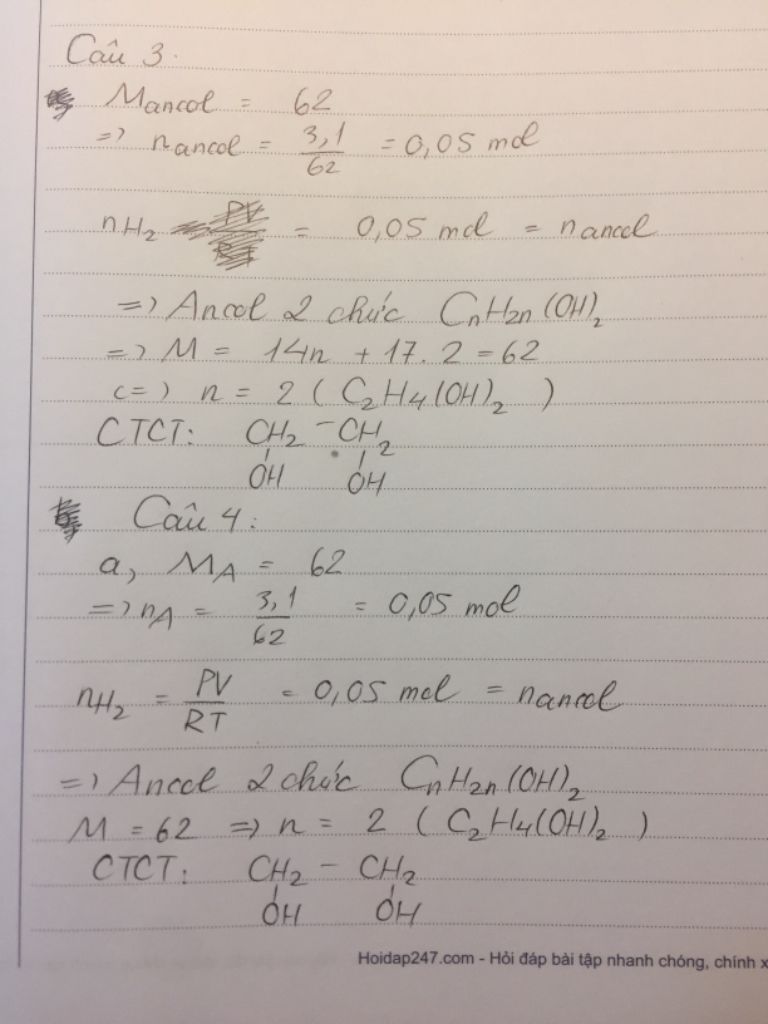 Câu 3.
Mancol = 62
=> nancol = 3,1/62 = 0,05 mol
nH₂ = 0,05 mol = nancol
=> Ancol 2 chức CnH2n(OH)₂
=> M = 14n + 17.2 = 62
<=> n = 2 ( C₂H₄(OH)₂ )
CTCT: CH₂ - CH₂
OH OH
Câu 4:
a, MA = 62
=> nA = 3,1/62 = 0,05 mol
nH₂ = PV/RT = 0,05 mol = nancol
=> Ancol 2 chức CnH2n(OH)₂
M = 62 => n = 2 ( C₂H₄(OH)₂ )
CTCT: CH₂ - CH₂
OH OH
Hoidap247.com - Hỏi đáp bài tập nhanh chóng, chính x